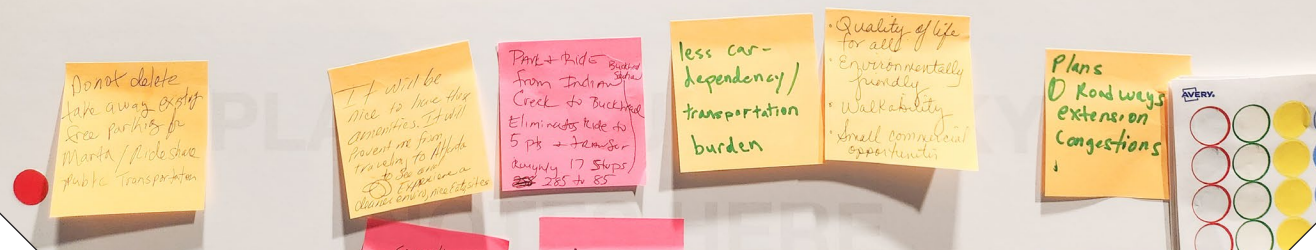 Do not delete
take away exist
free parking for
Marta / Rideshare
public Transportation
It will be
nice to have these
amenities. It will
prevent me from
traveling to Atlanta
to See and
Experience a
cleaner
Park + Ride
from Indian
Creek to Buckhead
Eliminates Ride to
5 pts + transfer
roughly 17 Stops
285 to 85
less car-
dependency/
transportation
burden
• Quality of life
for all
• Environmentally
friendly
• Walkability
• Small commercial
opportunities
Plans
Roadways
extension
Congestions
AVERY